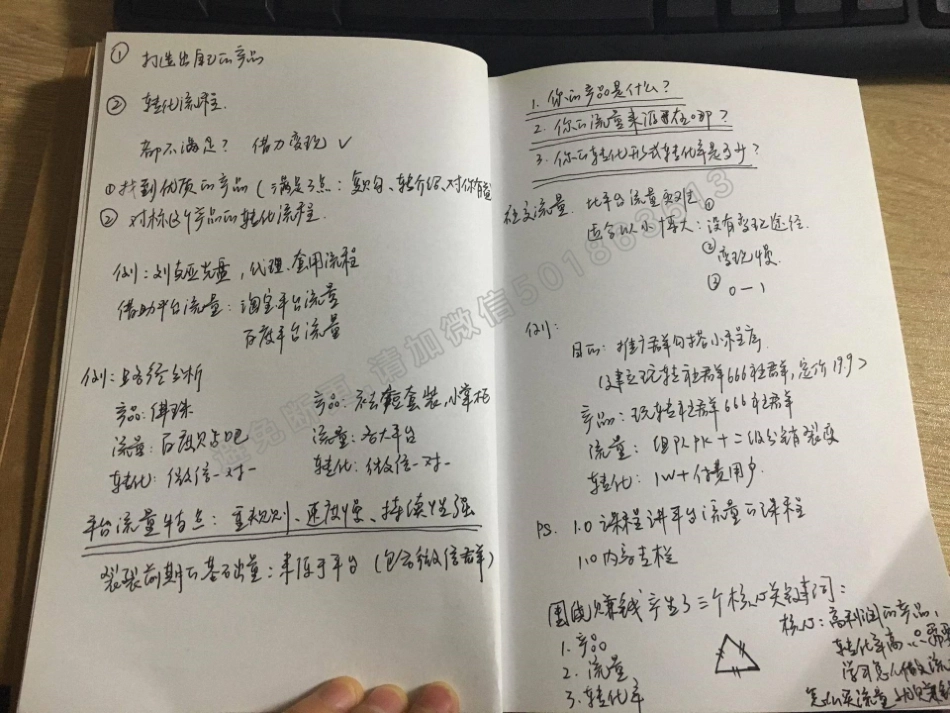 ① 打造出自己的产品
② 转化流程.
都不满足? 借力变现 ✓
①找到优质的产品(满足3点:复购、转介绍、对你有
② 对标这个产品的转化流程.
例:刘克亚光盘,代理.套用流程
借助平台流量:淘宝平台流量
百度平台流量
例: 分析
产品:佛珠
流量:百度贴吧
转化:微信一对一
产品: 套装,小掌柜
流量:各大平台
转化:微信一对一
平台流量特点:重规则、还放慢、持续性强
裂变前期的基础量:来源于平台(包含微信群)
1. 你的产品是什么?
2. 你的流量来源在哪?
3. 你的转化形式转化率是多少?
社交流量. 比平台流量
适合以小博大:①没有变现途径.
②变现慢.
③0-1
例:
目的:推广群内搭小程序.
(建立玩转社群666社群,定价19.9)
产品:玩转社群666社群
流量:组队PK+二级分销裂变
转化:1W+付费用户.
PS. 1.0课程讲平台流量的课程
1.0内容专栏
围绕'赚钱'产生了三个核心关键词:
1.产品
2.流量
3.转化率
核心:高利润的产品,
转化率高.只需要
学习怎么做流
怎么买流量
避免断更,请加微信501863613